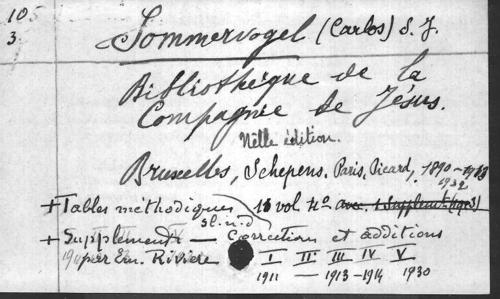 10
3
Sommervogel (Carlos) S. J.
Bibliothèque de la
Compagnie de Jésus.
Nlle édition.
Bruxelles, Schepens. Paris, Picard, 1890-
1932
+ Tables méthodiques vol. 4° avec 1 Supplemt.
s l. n. d
+ Supplement — Correction et additions
par Ern. Rivière I II III IV V
1911 — 1913-1914 1930